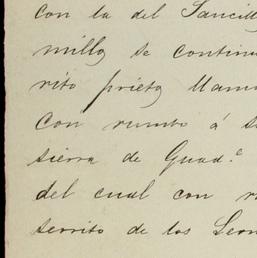 con la del Sancill
millo se continu
rito prieto llam
con rumbo á s
sierra de Guad.e
del cual con r
serrito de los Leon